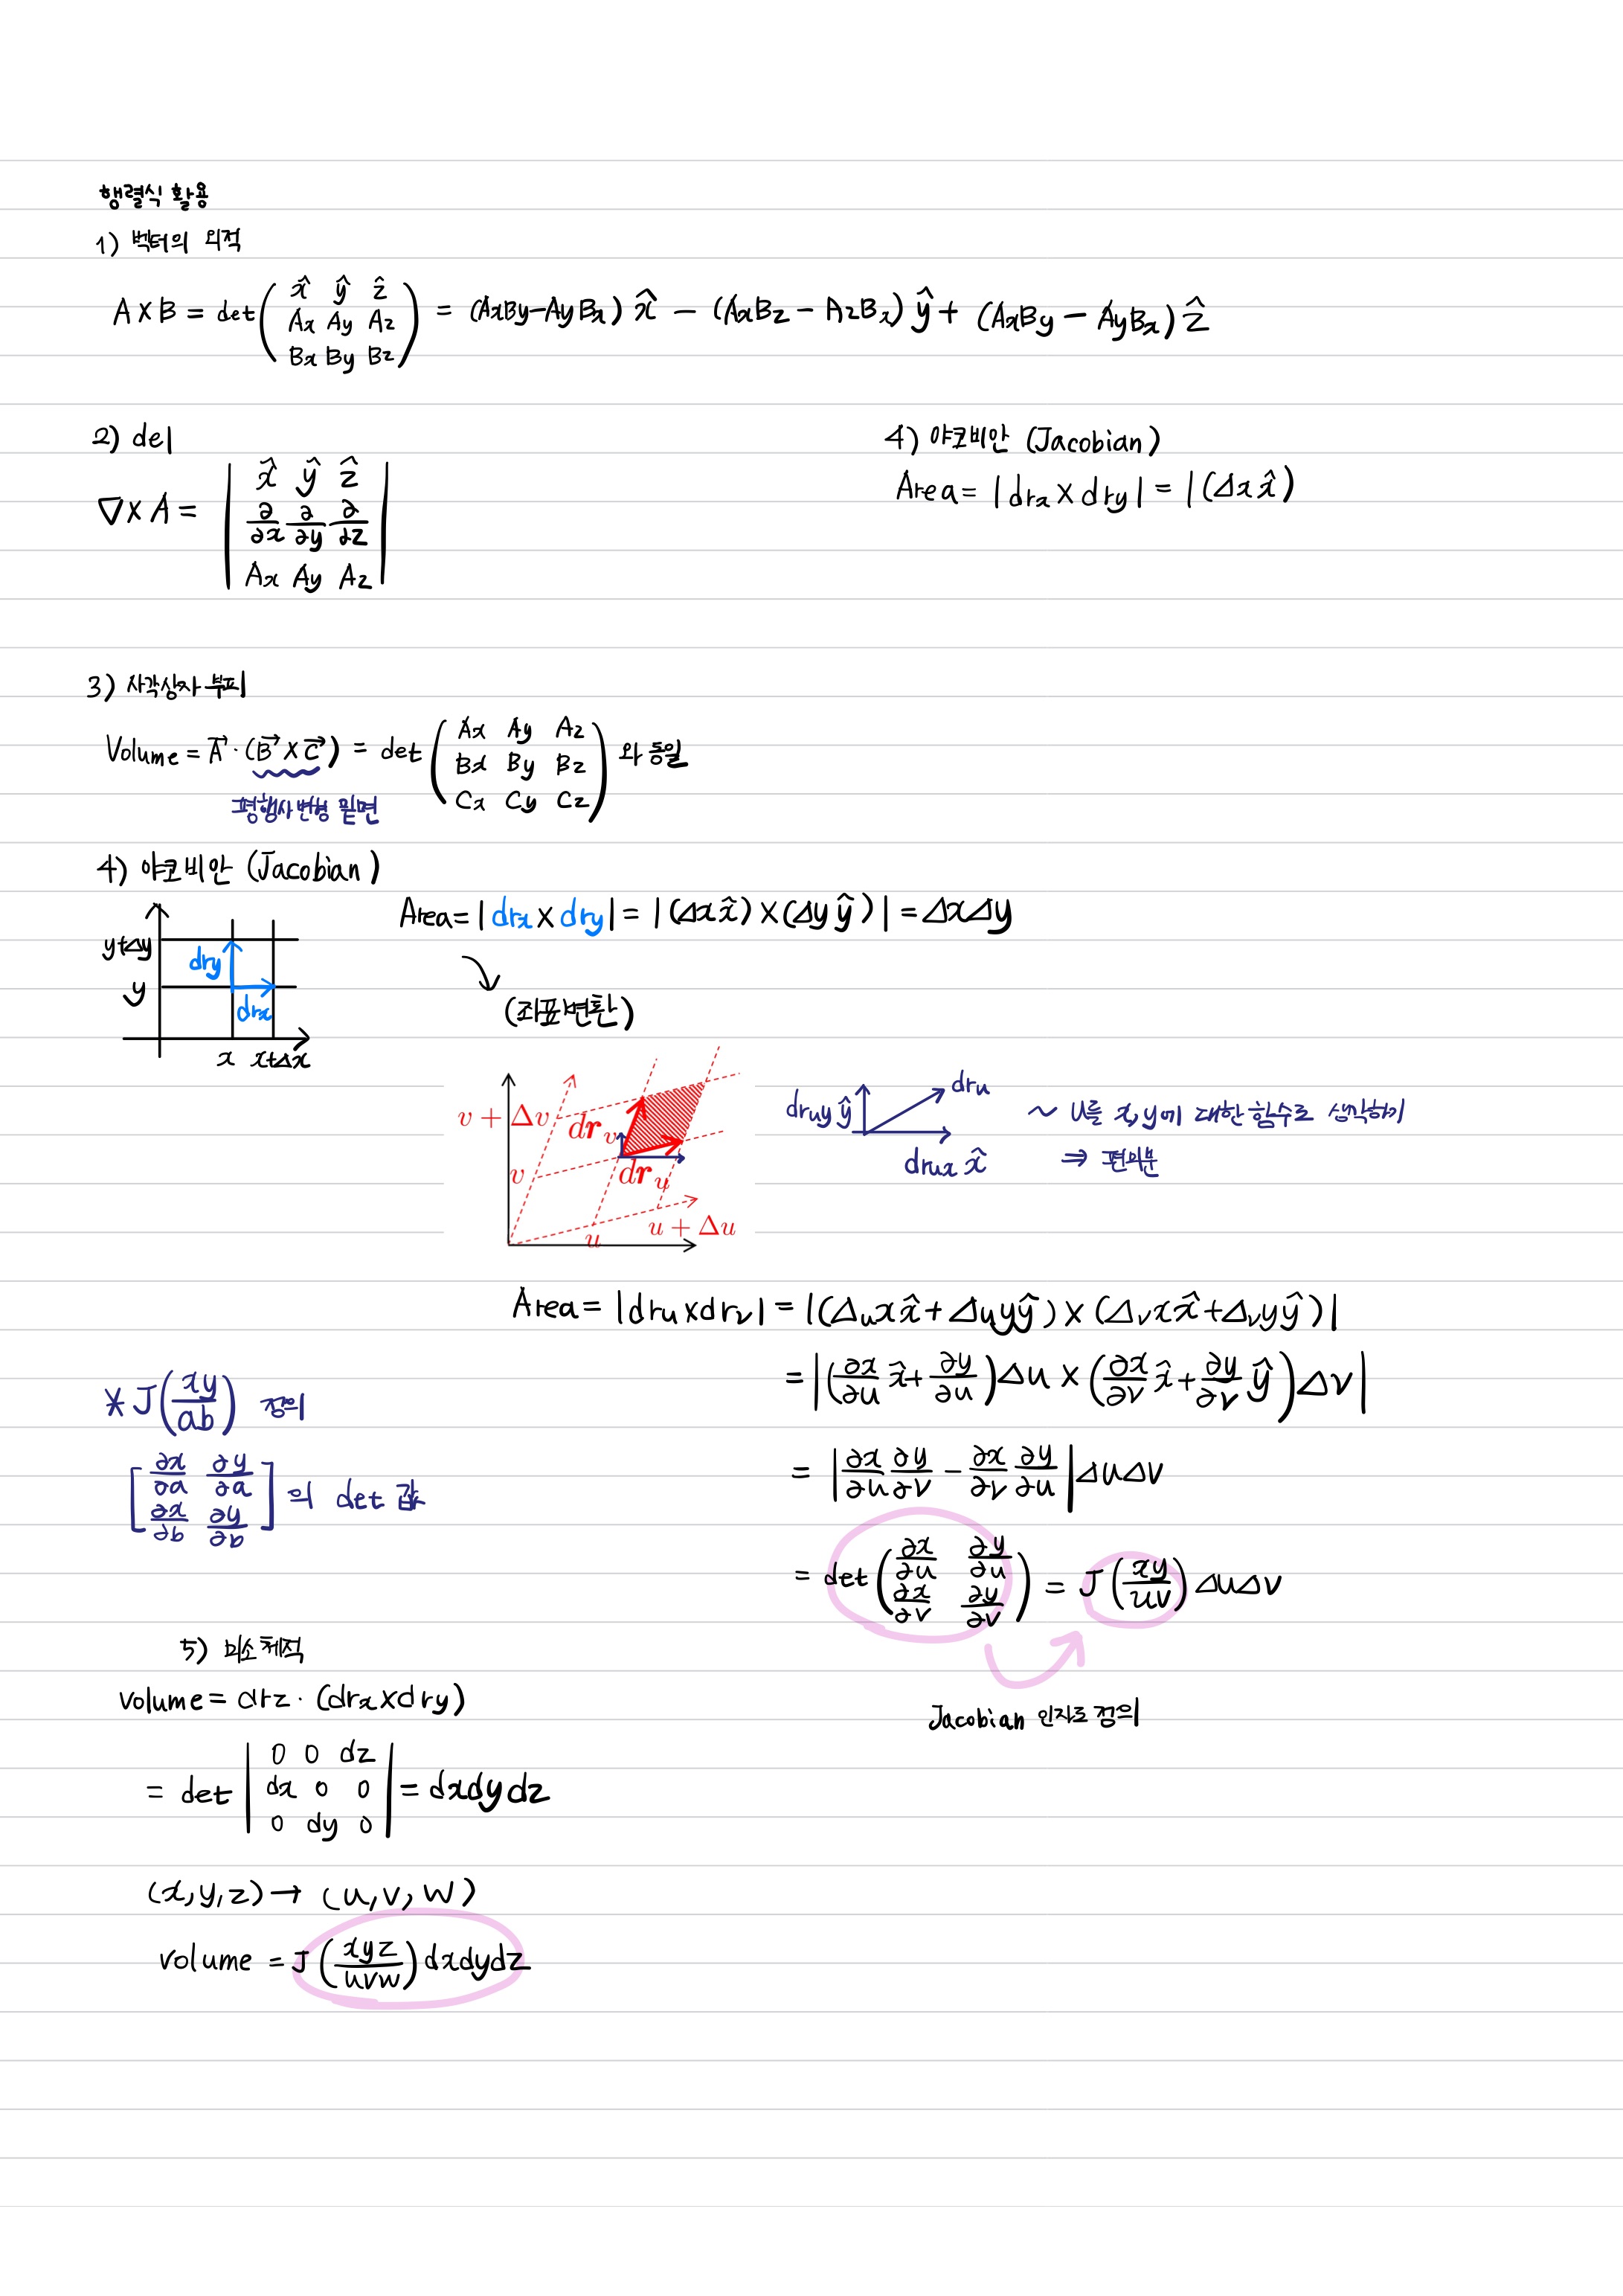 행렬식 활용
1) 벡터의 외적
A×B = det( x̂ ŷ ẑ
Ax Ay Az
Bx By Bz ) = (AxBy−AyBx) x̂ − (AxBz − AzBx) ŷ + (AxBy − AyBx) ẑ
2) del
∇×A = | x̂ ŷ ẑ
∂/∂x ∂/∂y ∂/∂z
Ax Ay Az |
4) 야코비안 (Jacobian)
Area = |drx × dry| = |(Δx x̂)
3) 사각상자 부피
Volume = A⃗·(B⃗×C⃗) = det( Ax Ay Az
Bx By Bz
Cx Cy Cz ) 와 동일
평행사변형 밑면
4) 야코비안 (Jacobian)
Area = |drx × dry| = |(Δx x̂)×(Δy ŷ)| = ΔxΔy
y+Δy
dry
y
drx
x x+Δx
(좌표변환)
v + Δv
drv
v
dru
u + Δu
u
druy ŷ
dru
drux x̂
~ u를 x,y에 대한 함수로 생각하기
⇒ 편미분
Area = |dru×drv| = |(Δux x̂ + Δuy ŷ) × (Δvx x̂ + Δvy ŷ)|
= |(∂x/∂u x̂ + ∂y/∂u)Δu × (∂x/∂v x̂ + ∂y/∂v ŷ)Δv|
= |∂x/∂u ∂y/∂v − ∂x/∂v ∂y/∂u|ΔuΔv
= det( ∂x/∂u ∂y/∂u
∂x/∂v ∂y/∂v ) = J(xy/uv) ΔuΔv
Jacobian 인자로 정의
* J(xy/ab) 정의
[ ∂x/∂a ∂y/∂a
∂x/∂b ∂y/∂b ] 의 det 값
5) 미소체적
volume = drz · (drx×dry)
= det | 0 0 dz
dx 0 0
0 dy 0 | = dxdydz
(x,y,z) → (u,v,w)
volume = J(xyz/uvw) dxdydz